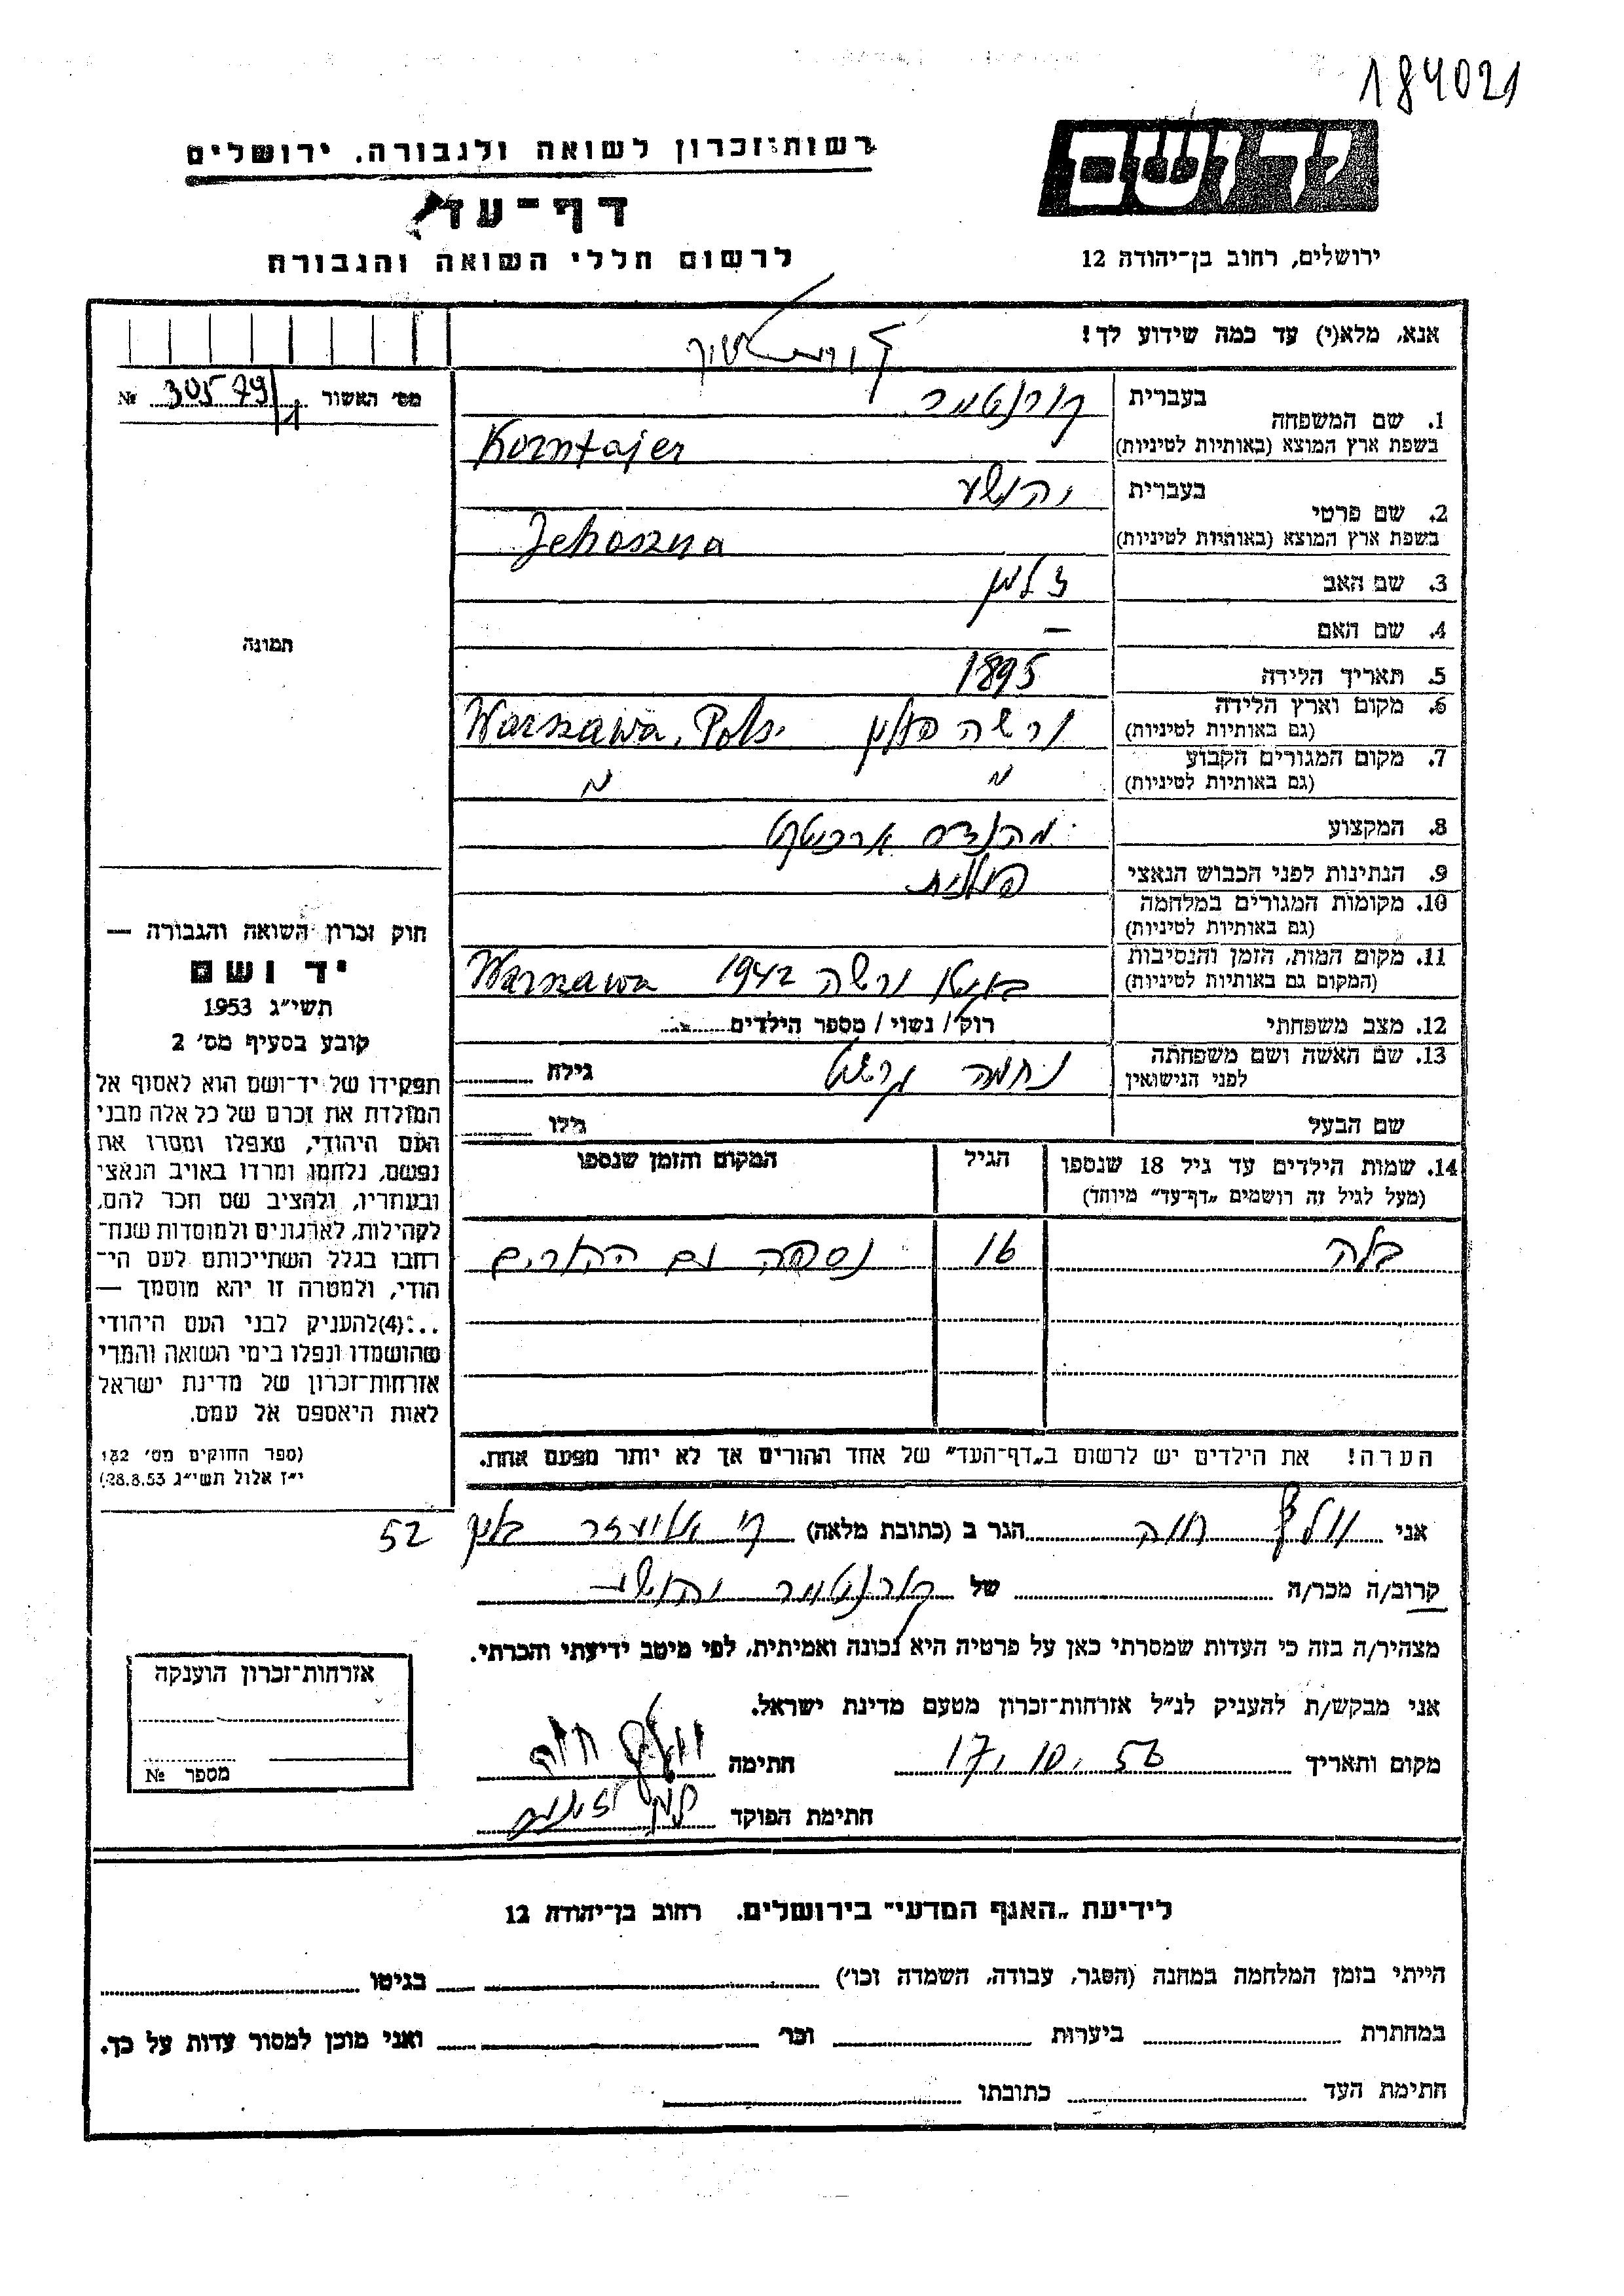 184021
יד ושם
רשות־זכרון לשואה ולגבורה. ירושלים
דף־עד
לרשום חללי השואה והגבורה
ירושלים, רחוב בן־יהודה 12
אנא, מלא(י) עד כמה שידוע לך!
מס׳ האשור 30579/1 №
תמונה
1. שם המשפחה
בעברית קורנטאיר
בשפת ארץ המוצא (באותיות לטיניות) Korntajer
2. שם פרטי
בעברית יהושע
בשפת ארץ המוצא (באותיות לטיניות) Jehoszua
3. שם האב זלמן
4. שם האם —
5. תאריך הלידה 1895
6. מקום וארץ הלידה ורשה פולין Warszawa, Pols.
(גם באותיות לטיניות)
7. מקום המגורים הקבוע
(גם באותיות לטיניות) " "
8. המקצוע מהנדס ארכיטקט
9. הנתינות לפני הכבוש הנאצי פולנית
10. מקומות המגורים במלחמה
(גם באותיות לטיניות)
11. מקום המות, הזמן והנסיבות בגיטו ורשה 1942 Warszawa
(המקום גם באותיות לטיניות)
12. מצב משפחתי רוק / נשוי / מספר הילדים
13. שם האשה ושם משפחתה נחמה גילה
לפני הנישואין
שם הבעל גילו
14. שמות הילדים עד גיל 18 שנספו הגיל המקום והזמן שנספו
(מעל לגיל זה רושמים „דף־עד״ מיוחד)
בלה 16 נספתה עם ההורים
הערה! את הילדים יש לרשום ב„דף־העד״ של אחד ההורים אך לא יותר מפעם אחת.
חוק זכרון השואה והגבורה —
יד ושם
תשי״ג 1953
קובע בסעיף מס׳ 2
תפקידו של יד־ושם הוא לאסוף אל
המולדת את זכרם של כל אלה מבני
העם היהודי, שנפלו ומסרו את
נפשם, נלחמו ומרדו באויב הנאצי
ובעוזריו, ולהציב שם וזכר להם,
לקהילות, לארגונים ולמוסדות שנח־
רבו בגלל השתייכותם לעם הי־
הודי, ולמטרה זו יהא מוסמך —
...(4) להעניק לבני העם היהודי
שהושמדו ונפלו בימי השואה והמרי
אזרחות־זכרון של מדינת ישראל
לאות היאספם אל עמם.
(ספר החוקים מס׳ 132
י״ז אלול תשי״ג 28.8.53)
אני וולף חוה הגר ב (כתובת מלאה) קי אליעזר בנין 52
קרוב/ה מכר/ה של קורנטאיר יהושע
מצהיר/ה בזה כי העדות שמסרתי כאן על פרטיה היא נכונה ואמיתית, לפי מיטב ידיעתי והכרתי.
אני מבקש/ת להעניק לנ״ל אזרחות־זכרון מטעם מדינת ישראל.
מקום ותאריך 17.10.56 חתימה וולף חוה
חתימת הפוקד
אזרחות־זכרון הוענקה
מספר №
לידיעת „האגף המדעי״ בירושלים. רחוב בן־יהודה 12
הייתי בזמן המלחמה במחנה (הסגר, עבודה, השמדה וכו׳) בגיטו
במחתרת ביערות וכו׳ ואני מוכן למסור עדות על כך.
חתימת העד כתובתו